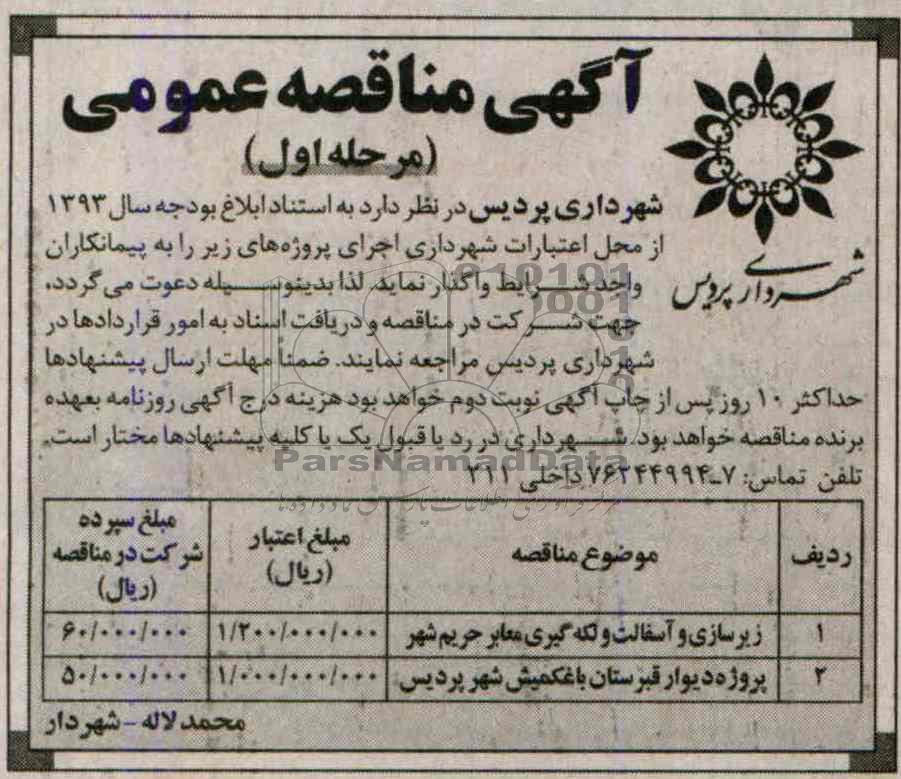 آگهی مناقصه عمومی
(مرحله اول)
شهرداری پردیس
شهرداری پردیس در نظر دارد به استناد ابلاغ بودجه سال ۱۳۹۳
از محل اعتبارات شهرداری اجرای پروژه‌های زیر را به پیمانکاران
واجد شرایط واگذار نماید. لذا بدینوسیله دعوت می گردد،
جهت شرکت در مناقصه و دریافت اسناد به امور قراردادها در
شهرداری پردیس مراجعه نمایند. ضمناً مهلت ارسال پیشنهادها
حداکثر ۱۰ روز پس از چاپ آگهی نوبت دوم خواهد بود هزینه درج آگهی روزنامه بعهده
برنده مناقصه خواهد بود. شهرداری در رد یا قبول یک یا کلیه پیشنهادها مختار است.
تلفن تماس: ۷-۷۶۲۴۴۹۹۴ داخلی ۲۱۱
ParsNamadData
ردیف موضوع مناقصه مبلغ اعتبار (ریال) مبلغ سپرده شرکت در مناقصه (ریال)
۱ زیرسازی و آسفالت و لکه گیری معابر حریم شهر ۱/۲۰۰/۰۰۰/۰۰۰ ۶۰/۰۰۰/۰۰۰
۲ پروژه دیوار قبرستان باغکمیش شهر پردیس ۱/۰۰۰/۰۰۰/۰۰۰ ۵۰/۰۰۰/۰۰۰
محمد لاله - شهردار